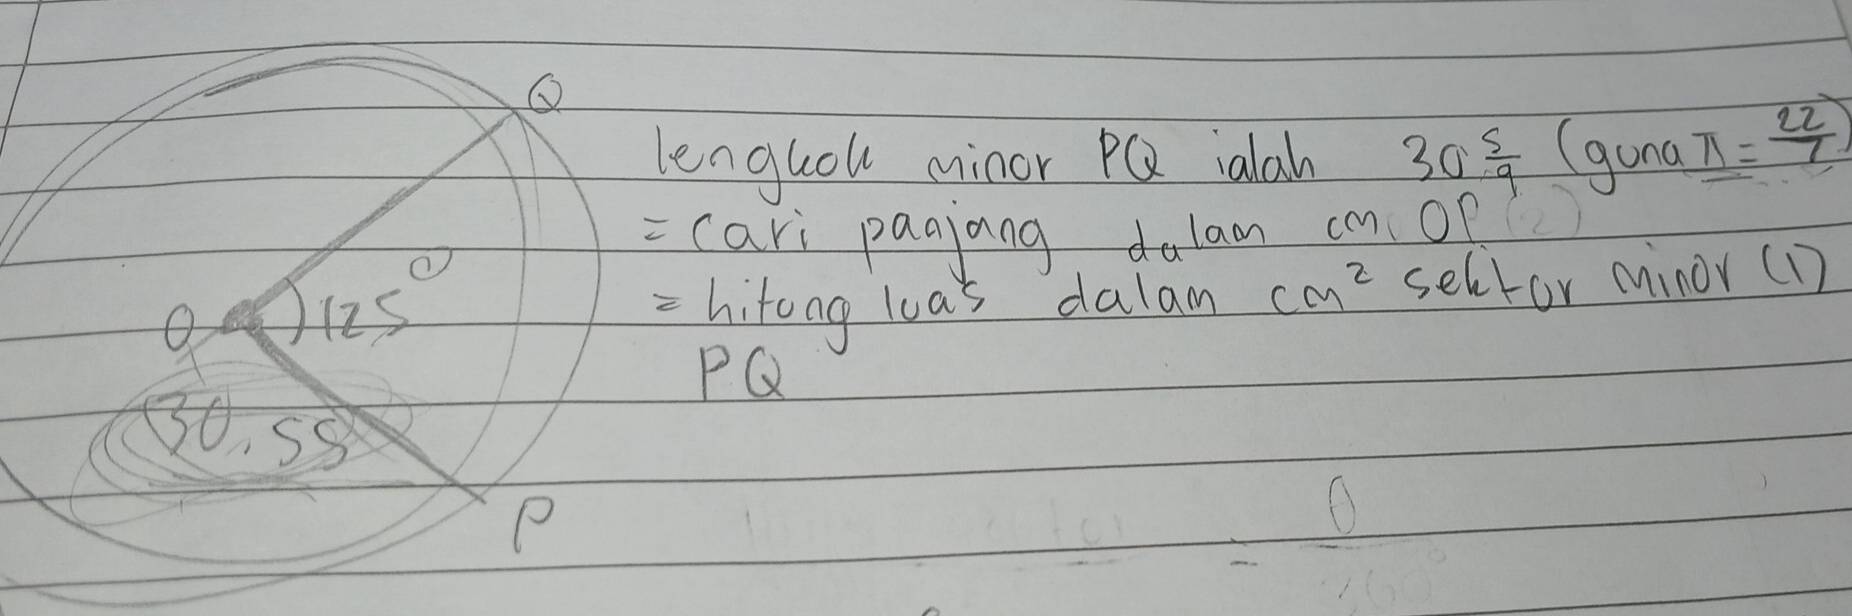 Q
lengkok minor PQ ialah 30 5/9 (guna π = 22/7)
= cari panjang dalam cm, OP (2)
125°
= hitung luas dalam cm² sektor minor (1)
O
PQ
30.55
P
θ